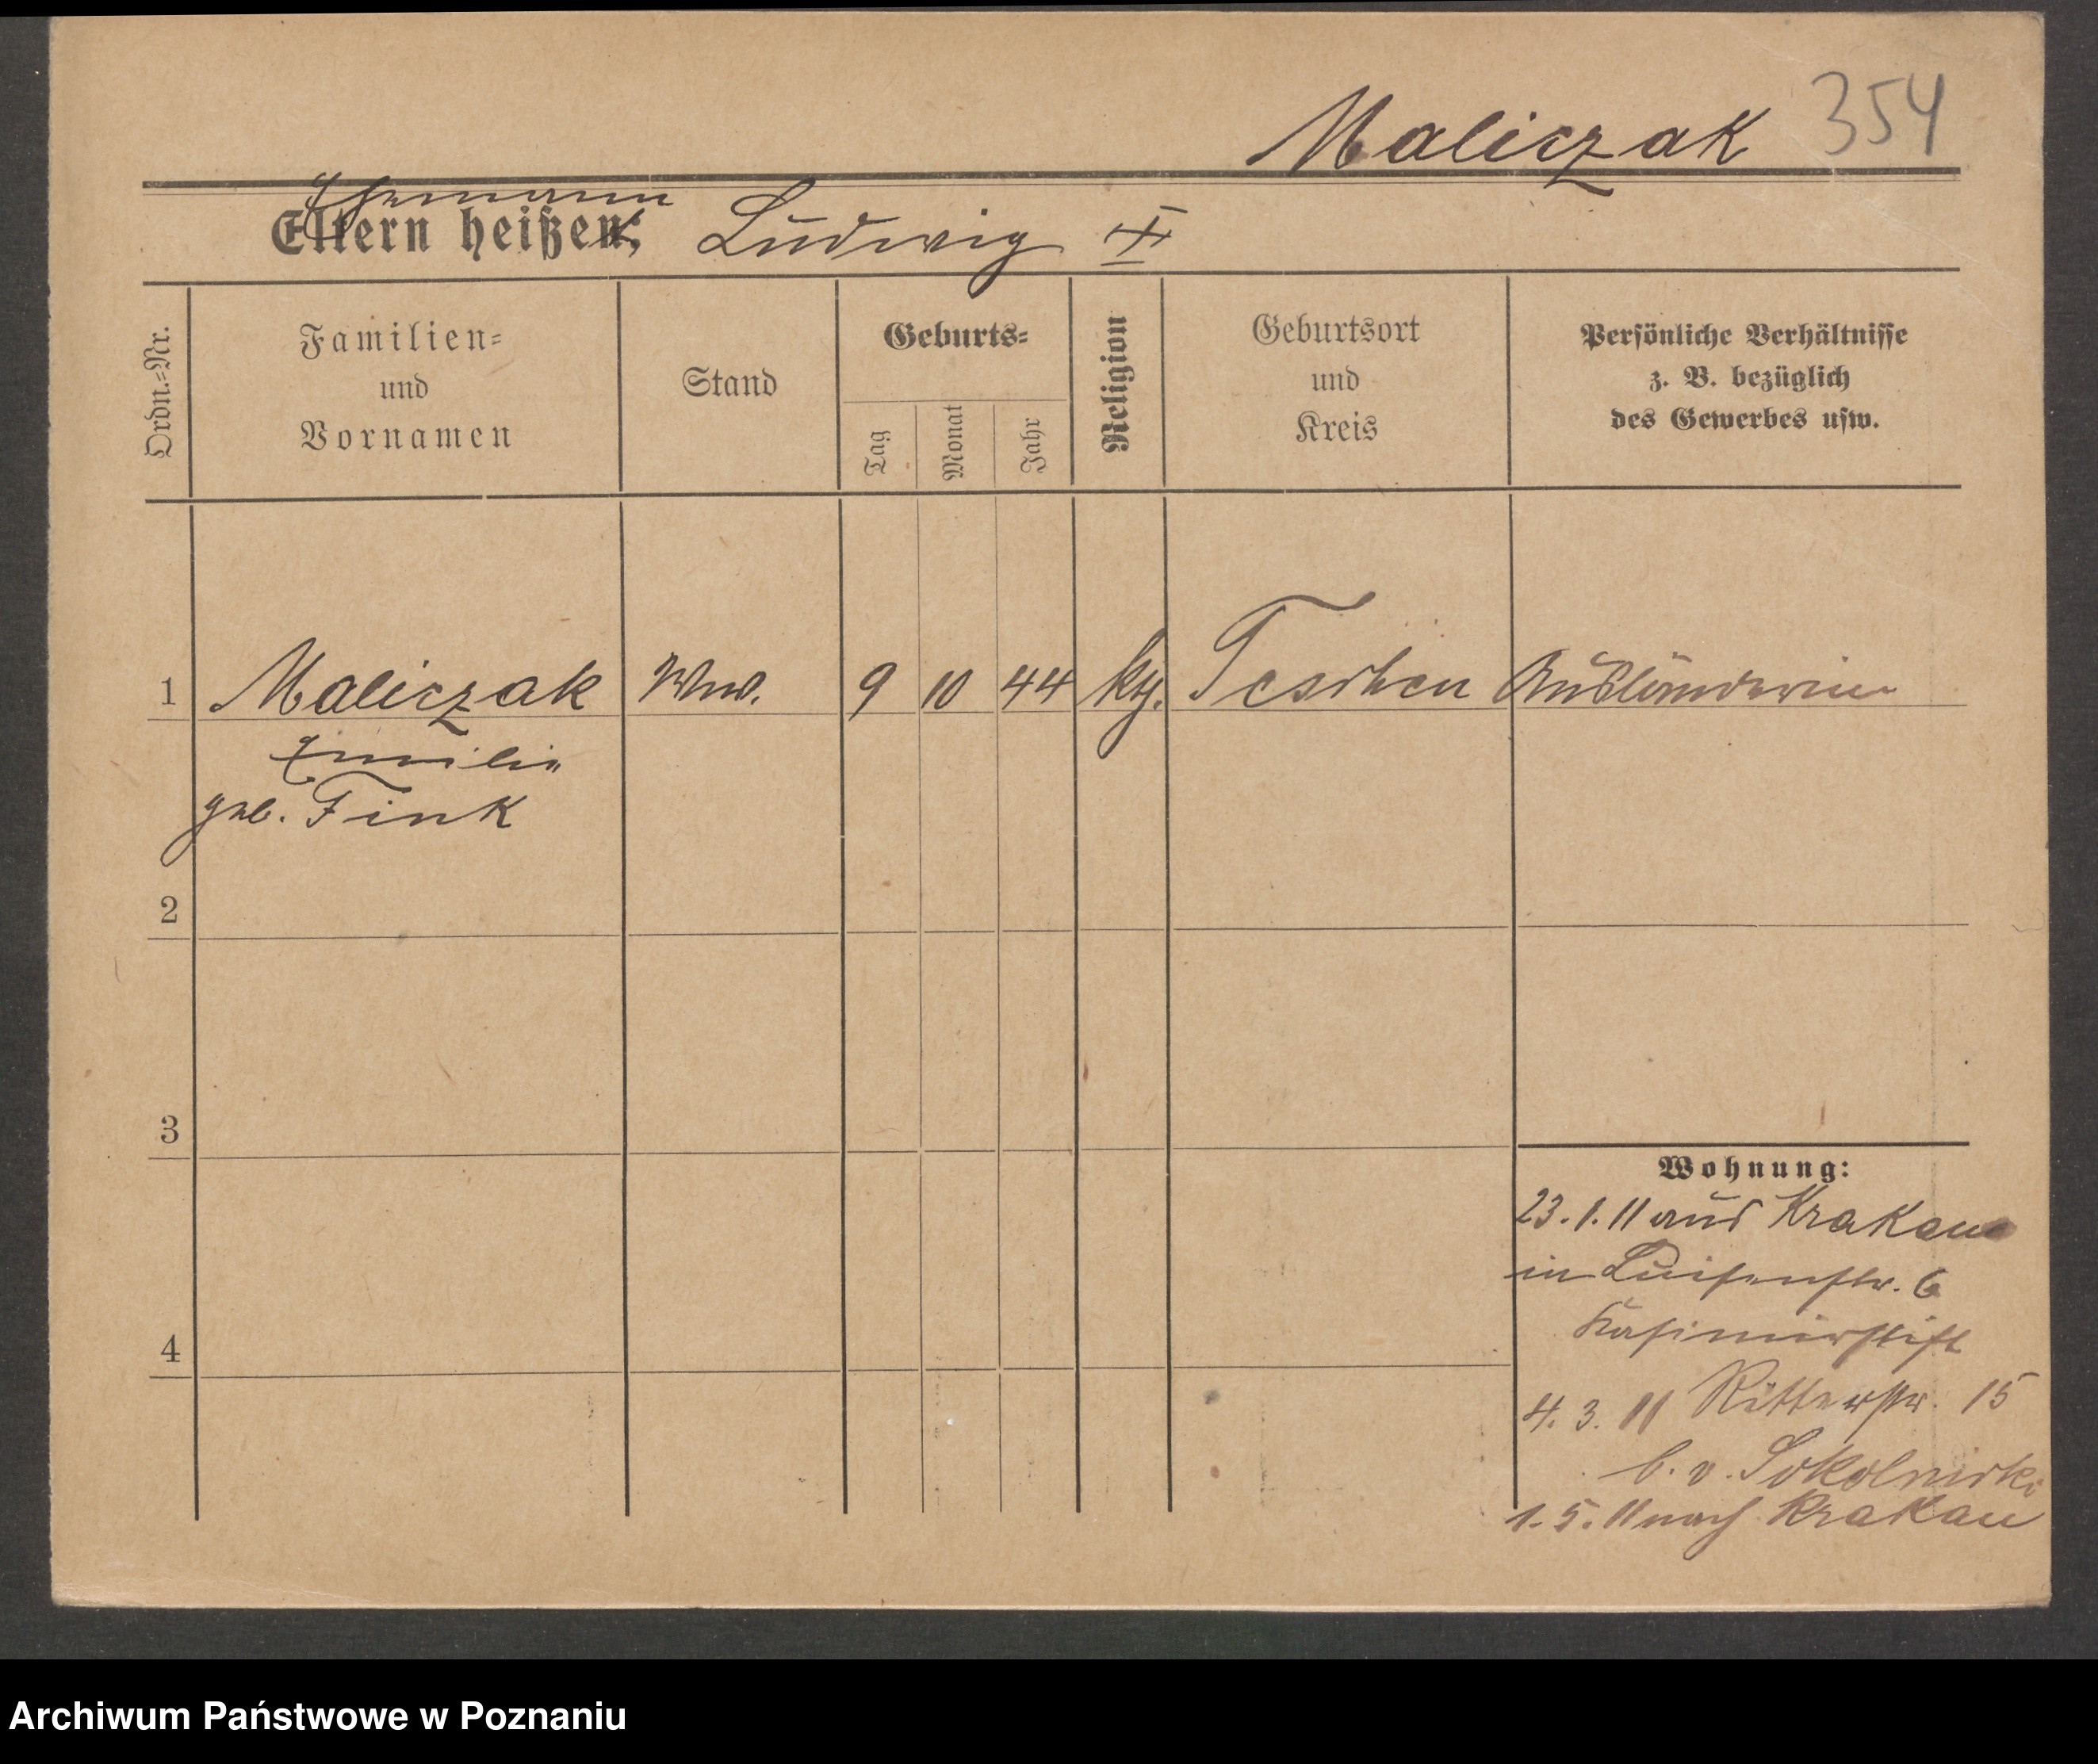 Maliczak 354
Ehemann
Eltern heißen: Ludwig
Ordn.=Nr.
Familien=
und
Vornamen
Stand
Geburts=
Tag
Monat
Jahr
Religion
Geburtsort
und
Kreis
Persönliche Verhältnisse
z. B. bezüglich
des Gewerbes usw.
1 Maliczak Ww. 9 10 44 kth. Teschen Ausländerin
Emilie
geb. Fink
2
3
Wohnung:
23.1.11 aus Krakau
in Luisenstr. 6
Kasimirstift
4
4.3.11 Ritterstr. 15
b. v. Sokolnicki
1.5.11 nach Krakau
Archiwum Państwowe w Poznaniu